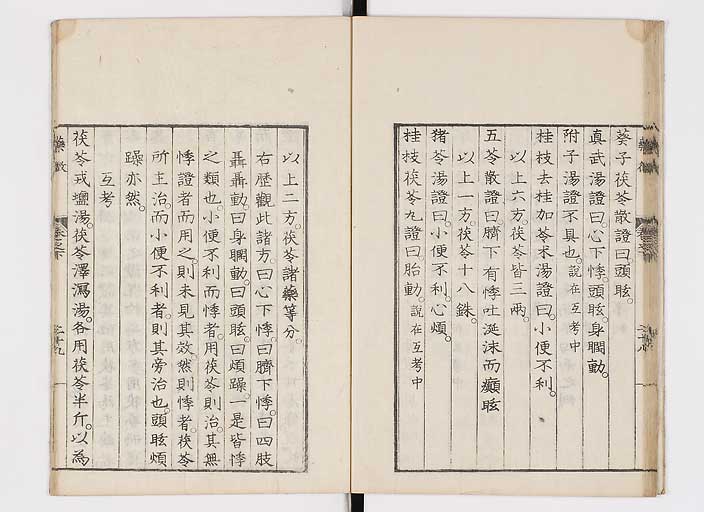 葵子茯苓散證曰。頭眩。
真武湯證曰。心下悸。頭眩。身瞤動。
附子湯證不具也。說在互考中
桂枝去桂加苓朮湯證曰。小便不利。
以上六方。茯苓皆三兩。
五苓散證曰。臍下有悸。吐涎沫而癲眩
以上一方。茯苓十八銖。
猪苓湯證曰。小便不利。心煩。
桂枝茯苓丸證曰。胎動。說在互考中
以上二方。茯苓諸藥等分。
右歷觀此諸方。曰心下悸。曰臍下悸。曰四肢
聶聶動。曰身瞤動。曰頭眩。曰煩躁。一是皆悸
之類也。小便不利而悸者。用茯苓則治。其無
悸證者而用之。則未見其效。然則悸者。茯苓
所主治。而小便不利者。則其旁治也。頭眩煩
躁亦然。
互考
茯苓戎鹽湯。茯苓澤瀉湯。各用茯苓半斤。以為
藥徵 卷之下